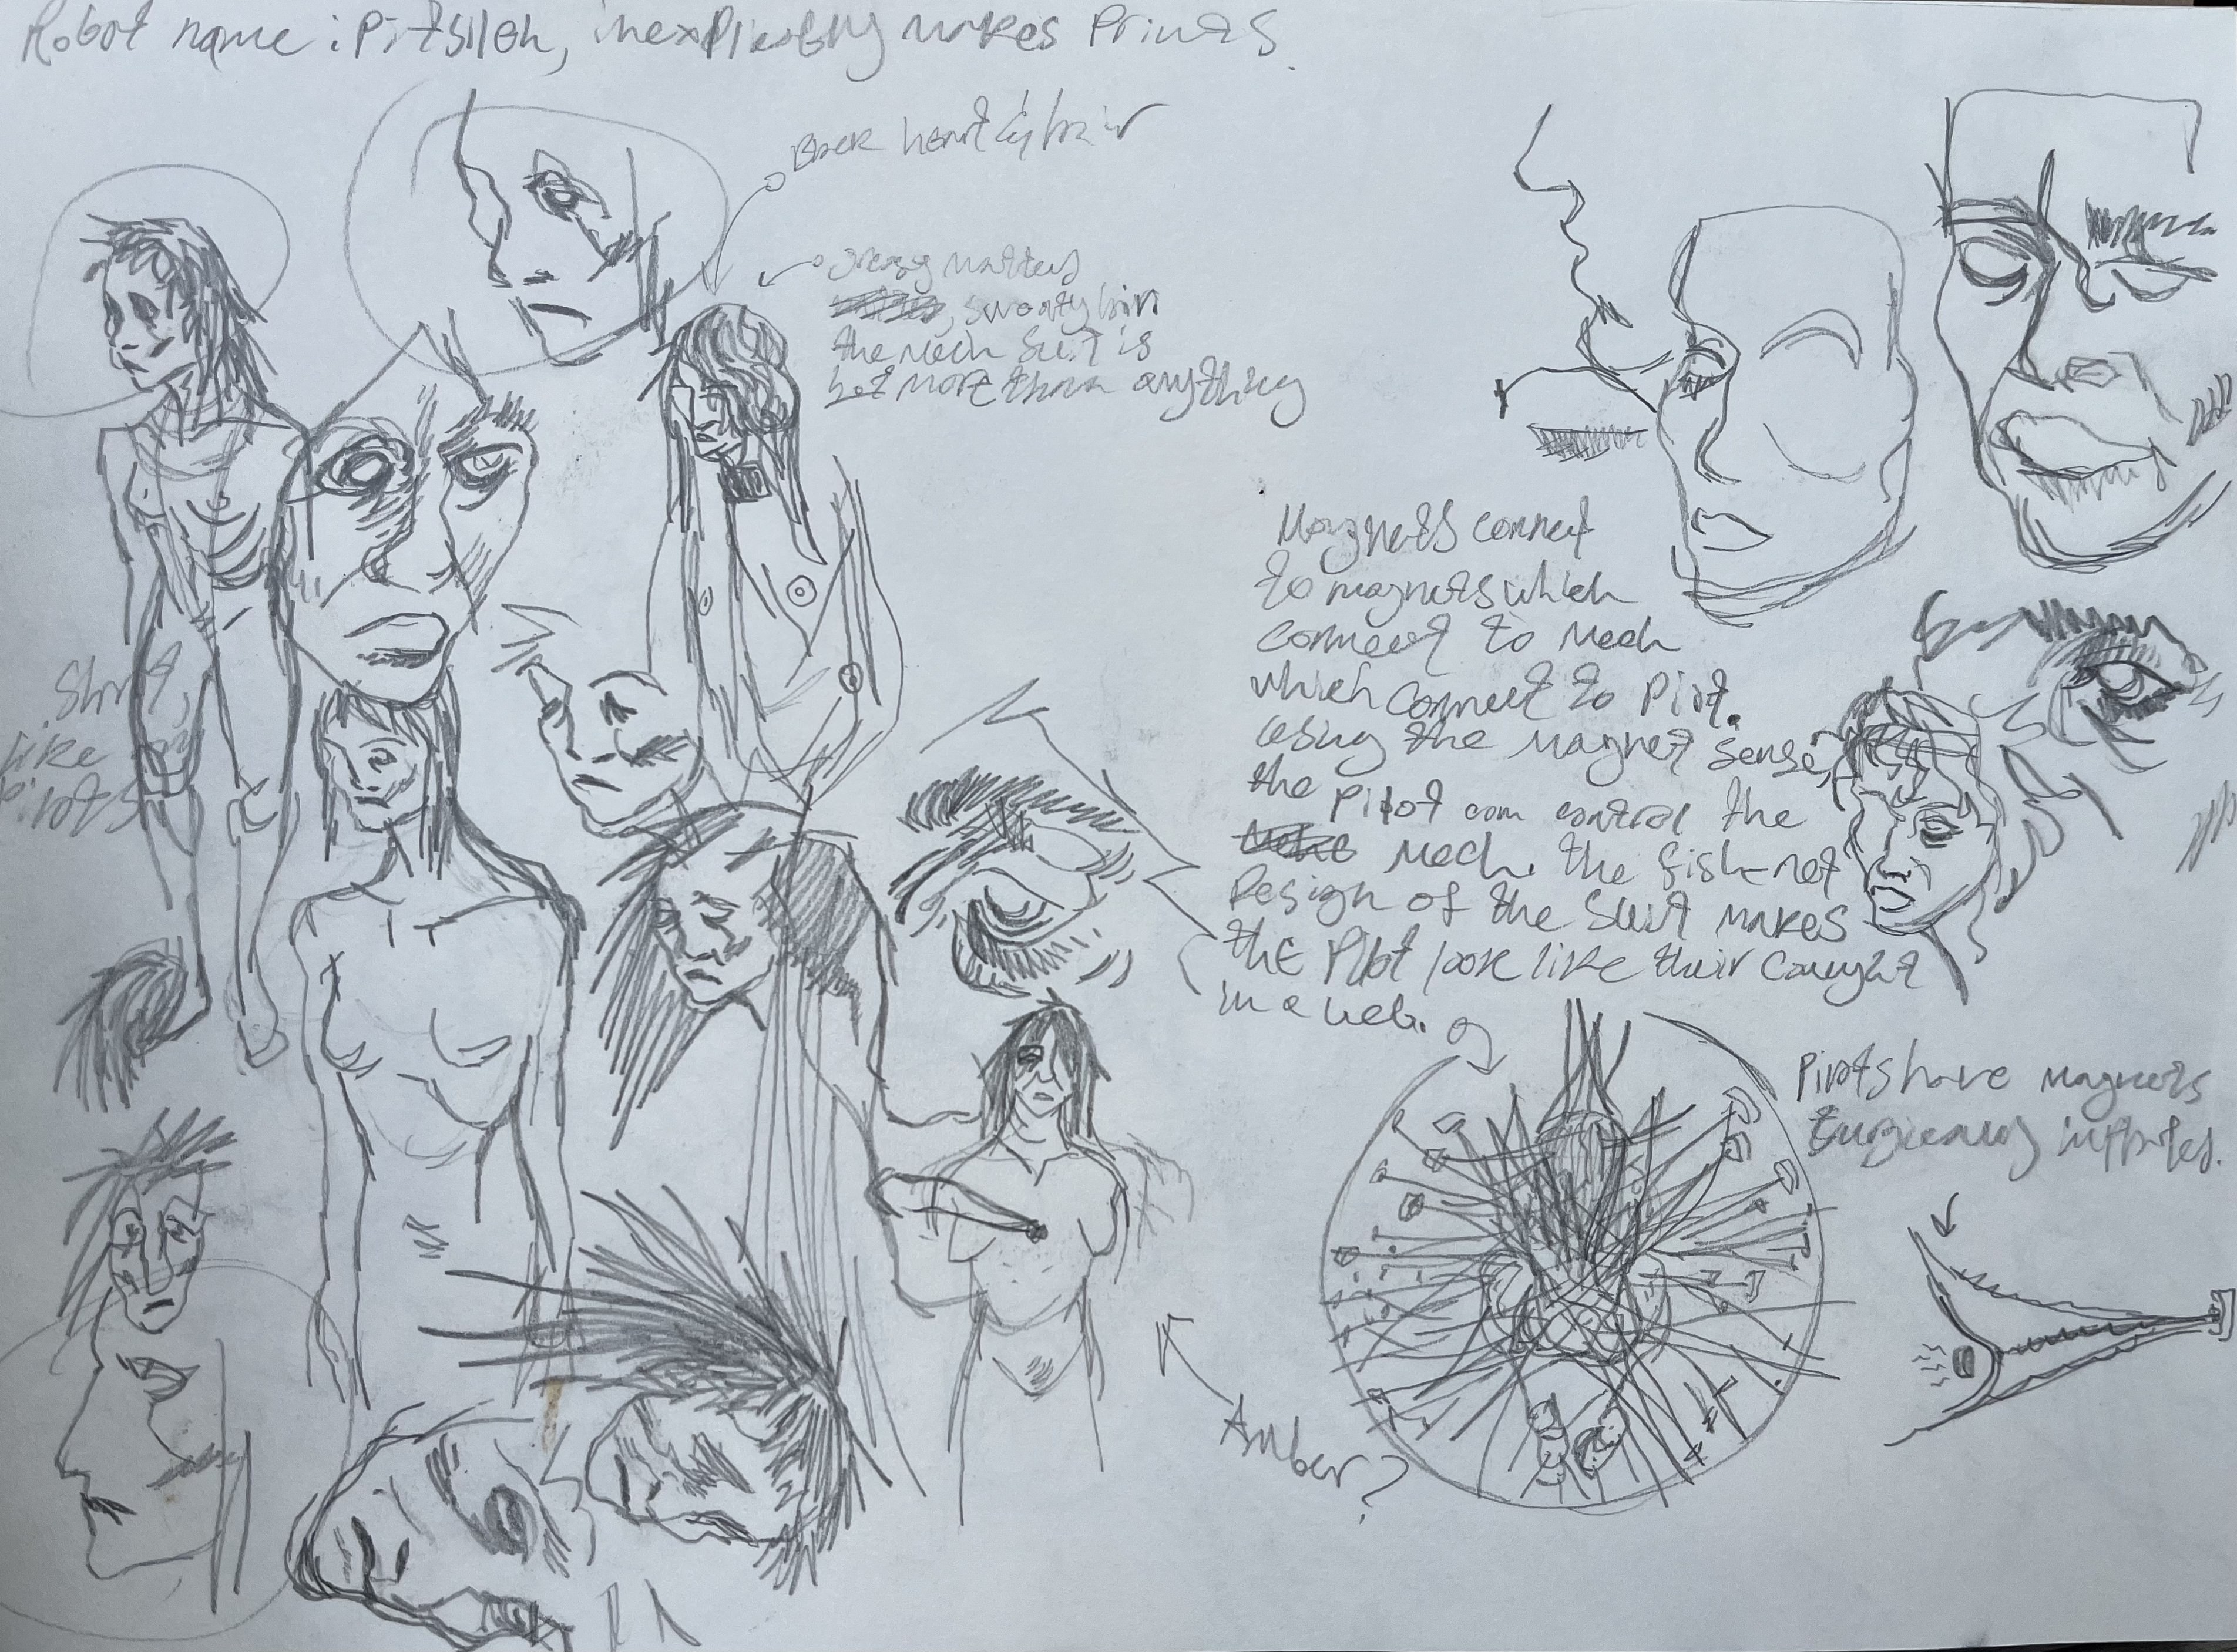 Robot name : Pitsileh, inexplicably makes Prints.
Back hair
greasy matted
, sweaty hair
the mech suit is
hot more than anything
Magnets connect
to magnets which
connect to mech
which connect to Pilot.
using the magnet sense,
the Pilot can control the
mech. the fish-net
Design of the suit makes
the Pilot look like their caught
in a web.
Pilots have magnets
Amber?
like
pilots